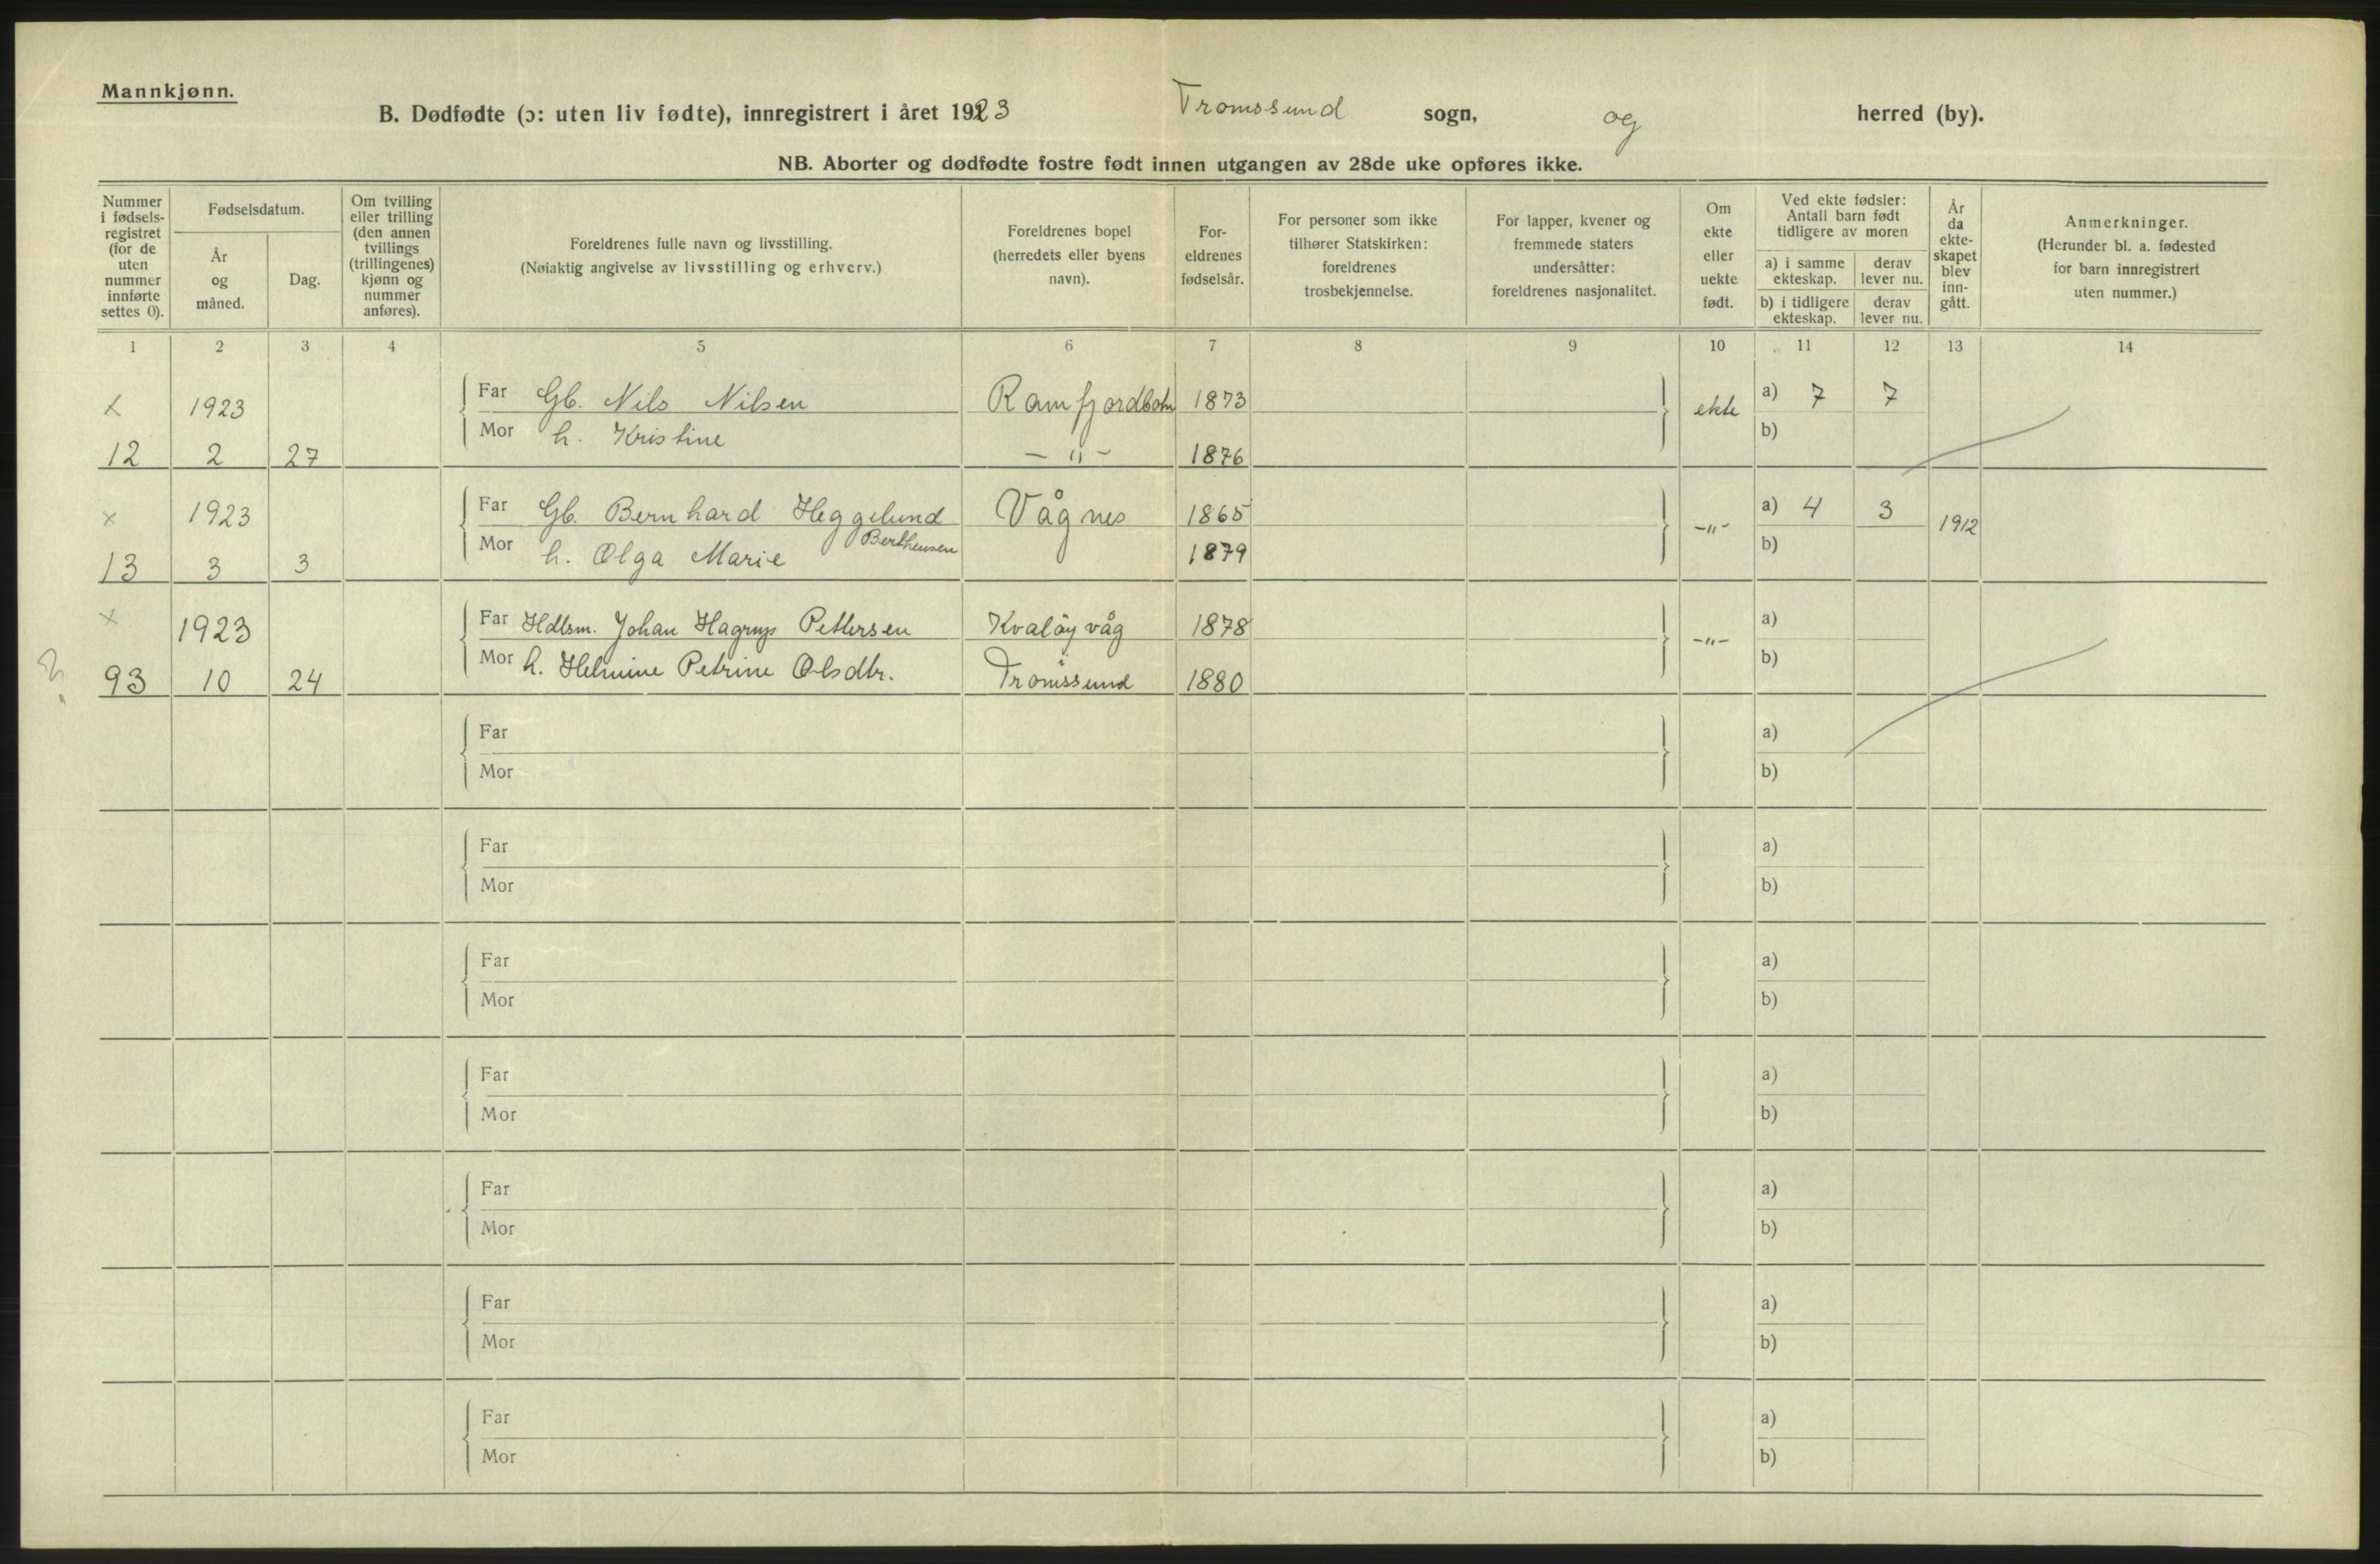 Mannkjønn.
B. Dødfødte (ɔ: uten liv fødte), innregistrert i året 1923 Tromssund sogn, og herred (by).
NB. Aborter og dødfødte fostre født innen utgangen av 28de uke opføres ikke.
Nummer i fødsels-registret (for de uten nummer innførte settes 0).
Fødselsdatum.
År og måned.
Dag.
Om tvilling eller trilling (den annen tvillings (trillingenes) kjønn og nummer anføres).
Foreldrenes fulle navn og livsstilling.
(Nøiaktig angivelse av livsstilling og erhverv.)
Foreldrenes bopel (herredets eller byens navn).
For-eldrenes fødselsår.
For personer som ikke tilhører Statskirken: foreldrenes trosbekjennelse.
For lapper, kvener og fremmede staters undersåtter: foreldrenes nasjonalitet.
Om ekte eller uekte født.
Ved ekte fødsler: Antall barn født tidligere av moren
a) i samme ekteskap. derav lever nu.
b) i tidligere ekteskap. derav lever nu.
År da ekte-skapet blev inn-gått.
Anmerkninger.
(Herunder bl. a. fødested for barn innregistrert uten nummer.)
1 2 3 4 5 6 7 8 9 10 11 12 13 14
x 1923 Far Gb. Nils Nilsen Ramfjordbotn 1873 ekte a) 7 7
12 2 27 Mor h. Kristine – " – 1876 b)
x 1923 Far Gb. Bernhard Heggelund Vågnes 1865 –"– a) 4 3 1912
13 3 3 Mor h. Olga Marie Berthensen 1879 b)
x 1923 Far Hdlsm. Johan Hagrup Pettersen Kvaløyvåg 1878 –"– a)
? 93 10 24 Mor h. Helmine Petrine Olsdtr. Tromssund 1880 b)
Far a)
Mor b)
Far a)
Mor b)
Far a)
Mor b)
Far a)
Mor b)
Far a)
Mor b)
Far a)
Mor b)
Far a)
Mor b)